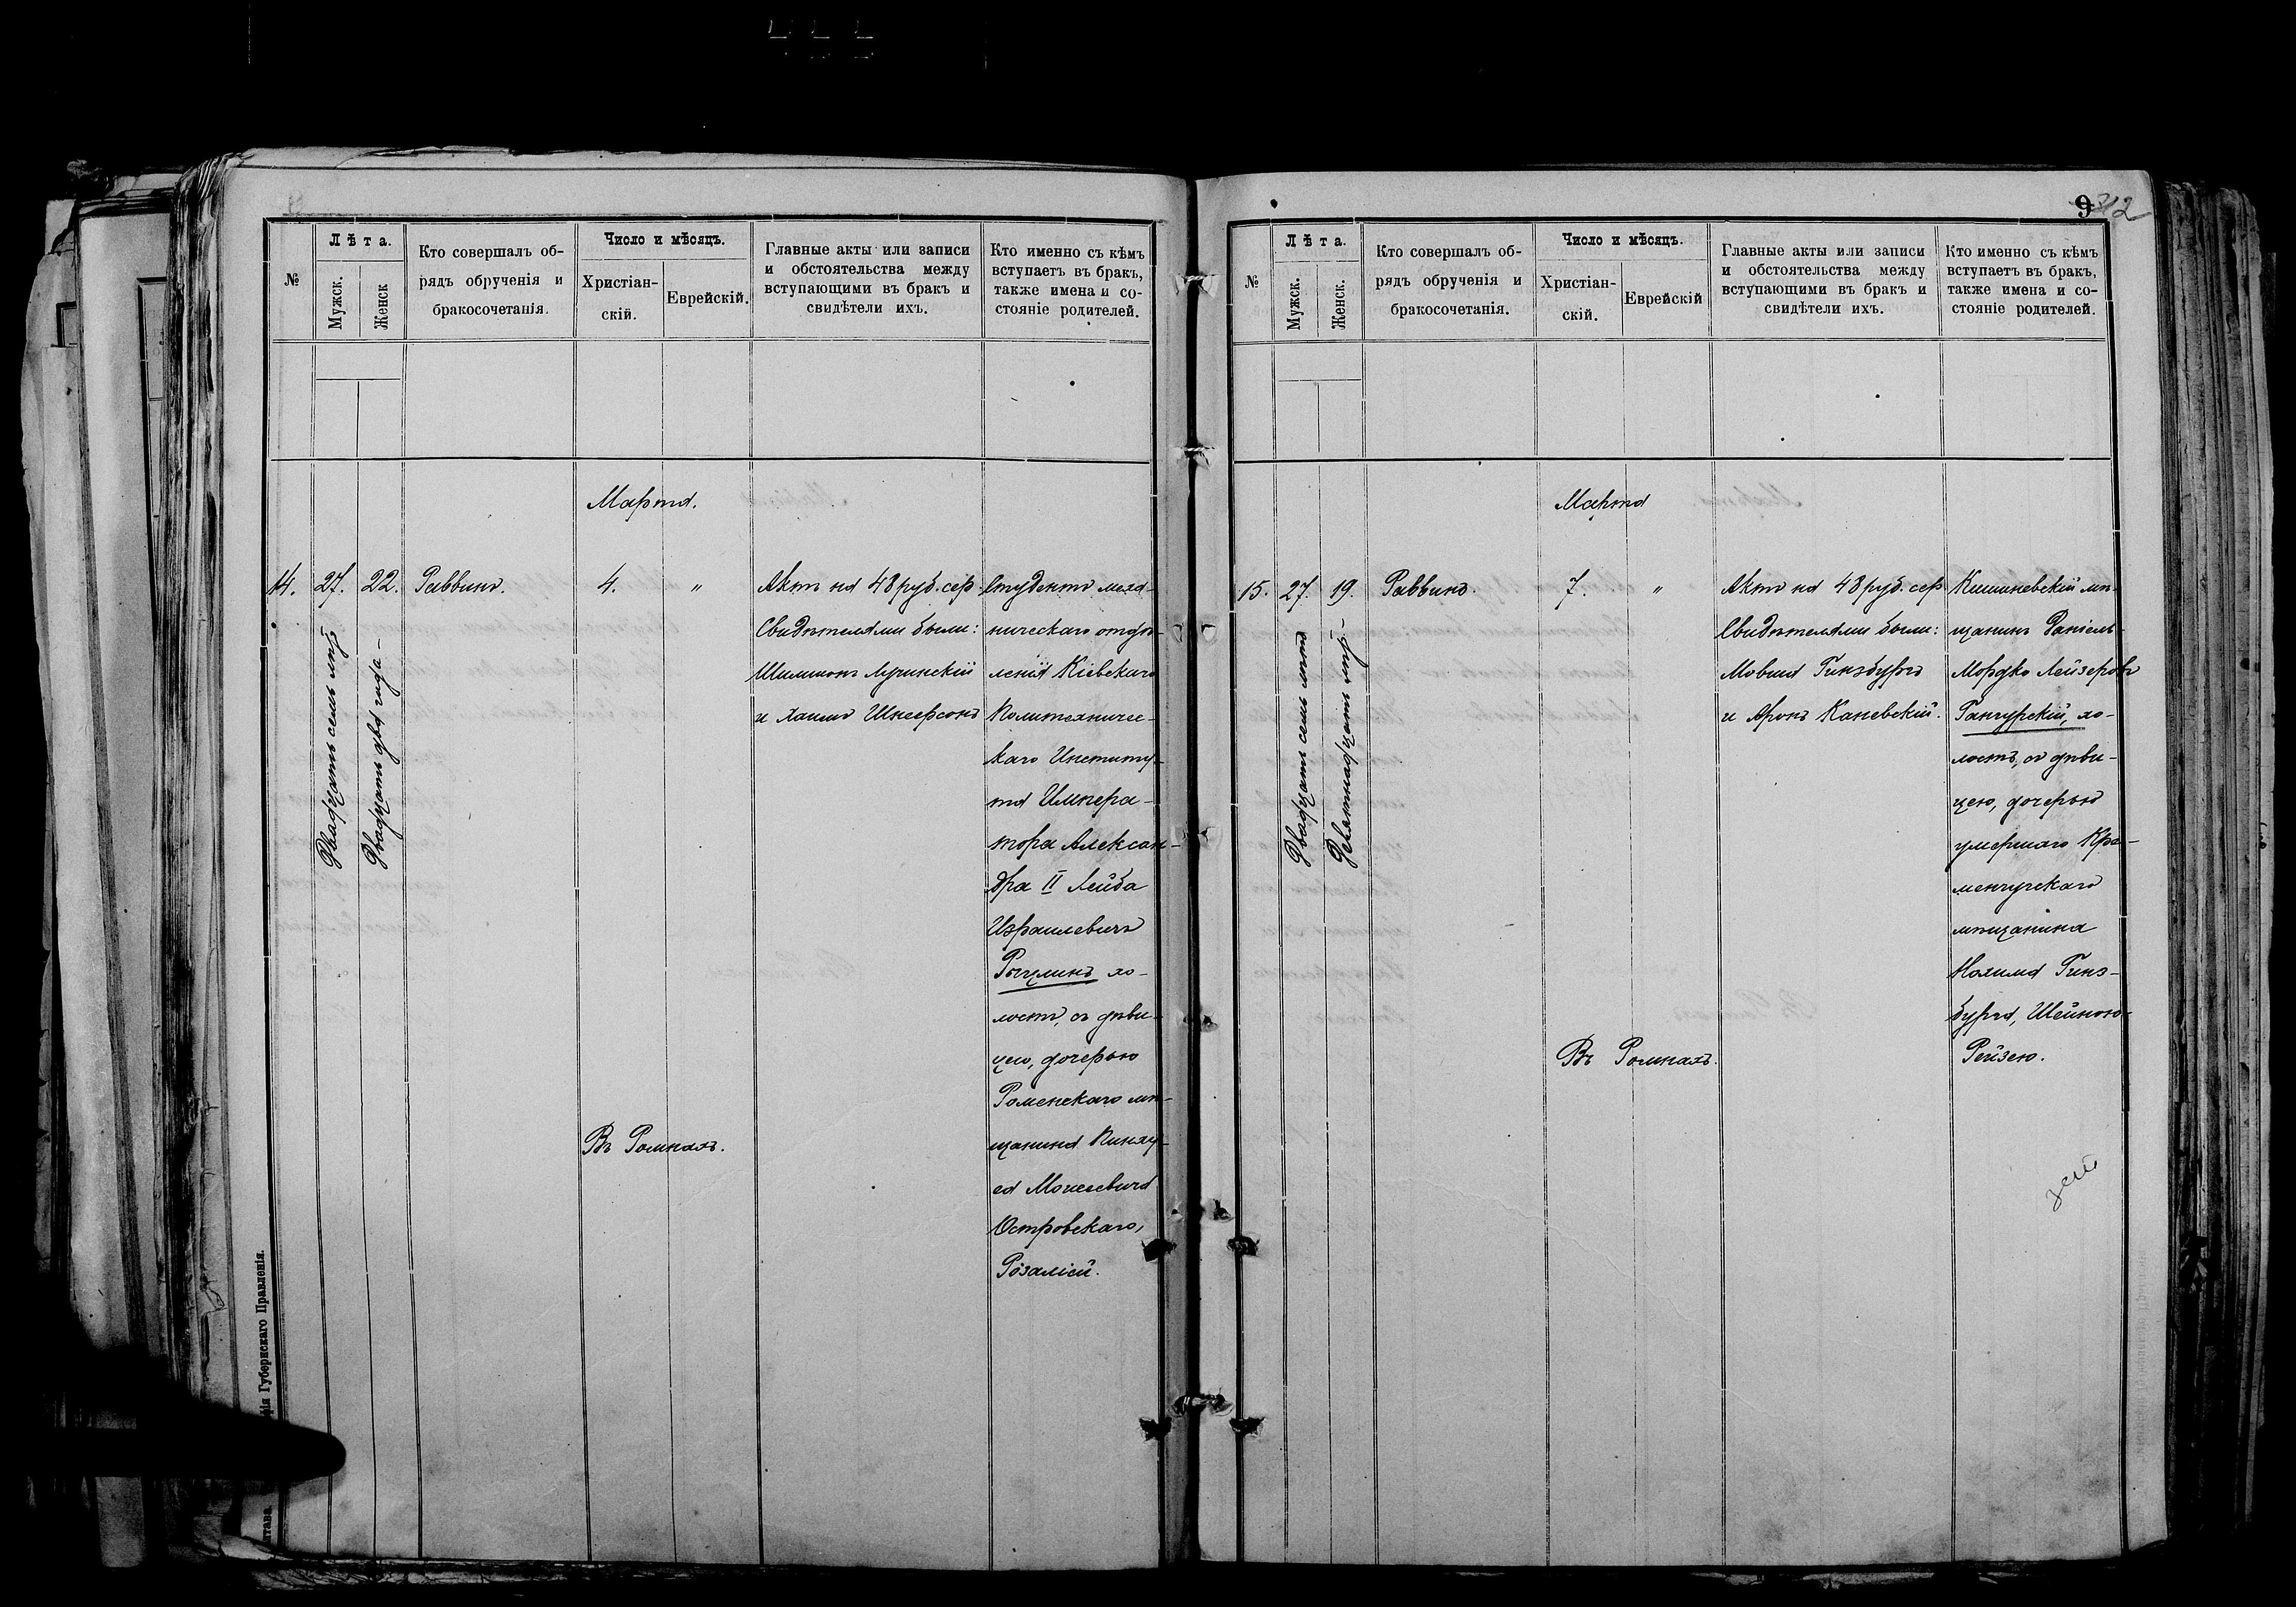 №
Лѣта.
Мужск.
Женск
Кто совершалъ об-
рядъ обрученія и
бракосочетанія.
Число и мѣсяцъ.
Христіан-
скій.
Еврейскій.
Главные акты или записи
и обстоятельства между
вступающими въ бракъ и
свидѣтели ихъ.
Кто именно съ кѣмъ
вступаетъ въ бракъ,
также имена и со-
стояніе родителей.
Марта.
14.
27.
Двадцать семь лѣтъ
22.
Двадцать два года –
Раввинъ.
4.
"
Актъ на 48 руб. сер.
Свидѣтелями были:
Шимшонъ Лучинскій
и Хаимъ Шнеерсонъ
Студентъ меха-
ническаго отдѣ-
ленія Кіевскаго
Политехничес-
каго Институ-
та Импера-
тора Алексан-
дра II Лейба
Израилевичъ
Рыцлинъ хо-
лостъ, съ дѣви-
цею, дочерью
Роменскаго мѣ-
щанина Пинху-
са Моисеевича
Островскаго,
Розаліей.
Въ Ромнахъ.
рія Губернскаго Правленія.
тава
9
312
№
Лѣта.
Мужск.
Женск.
Кто совершалъ об-
рядъ обрученія и
бракосочетанія.
Число и мѣсяцъ.
Христіан-
скій.
Еврейскій
Главные акты или записи
и обстоятельства между
вступающими въ бракъ и
свидѣтели ихъ.
Кто именно съ кѣмъ
вступаетъ въ бракъ,
также имена и со-
стояніе родителей.
Марта
15.
27.
Двадцать семь лѣтъ
19.
Девятнадцать лѣтъ –
Раввинъ.
7.
"
Актъ на 48 руб. сер.
Свидѣтелями были:
Мовша Гинзбургъ
и Аронъ Каневскій.
Кишиневскій мѣ-
щанинъ Даніель-
Мордко Лейзеровъ
Ранчурскій, хо-
лостъ, съ дѣви-
цею, дочерью
умершаго Кре-
менчугскаго
мѣщанина
Нохима Гинз-
бурга, Шейною-
Рейзею.
Въ Ромнахъ.